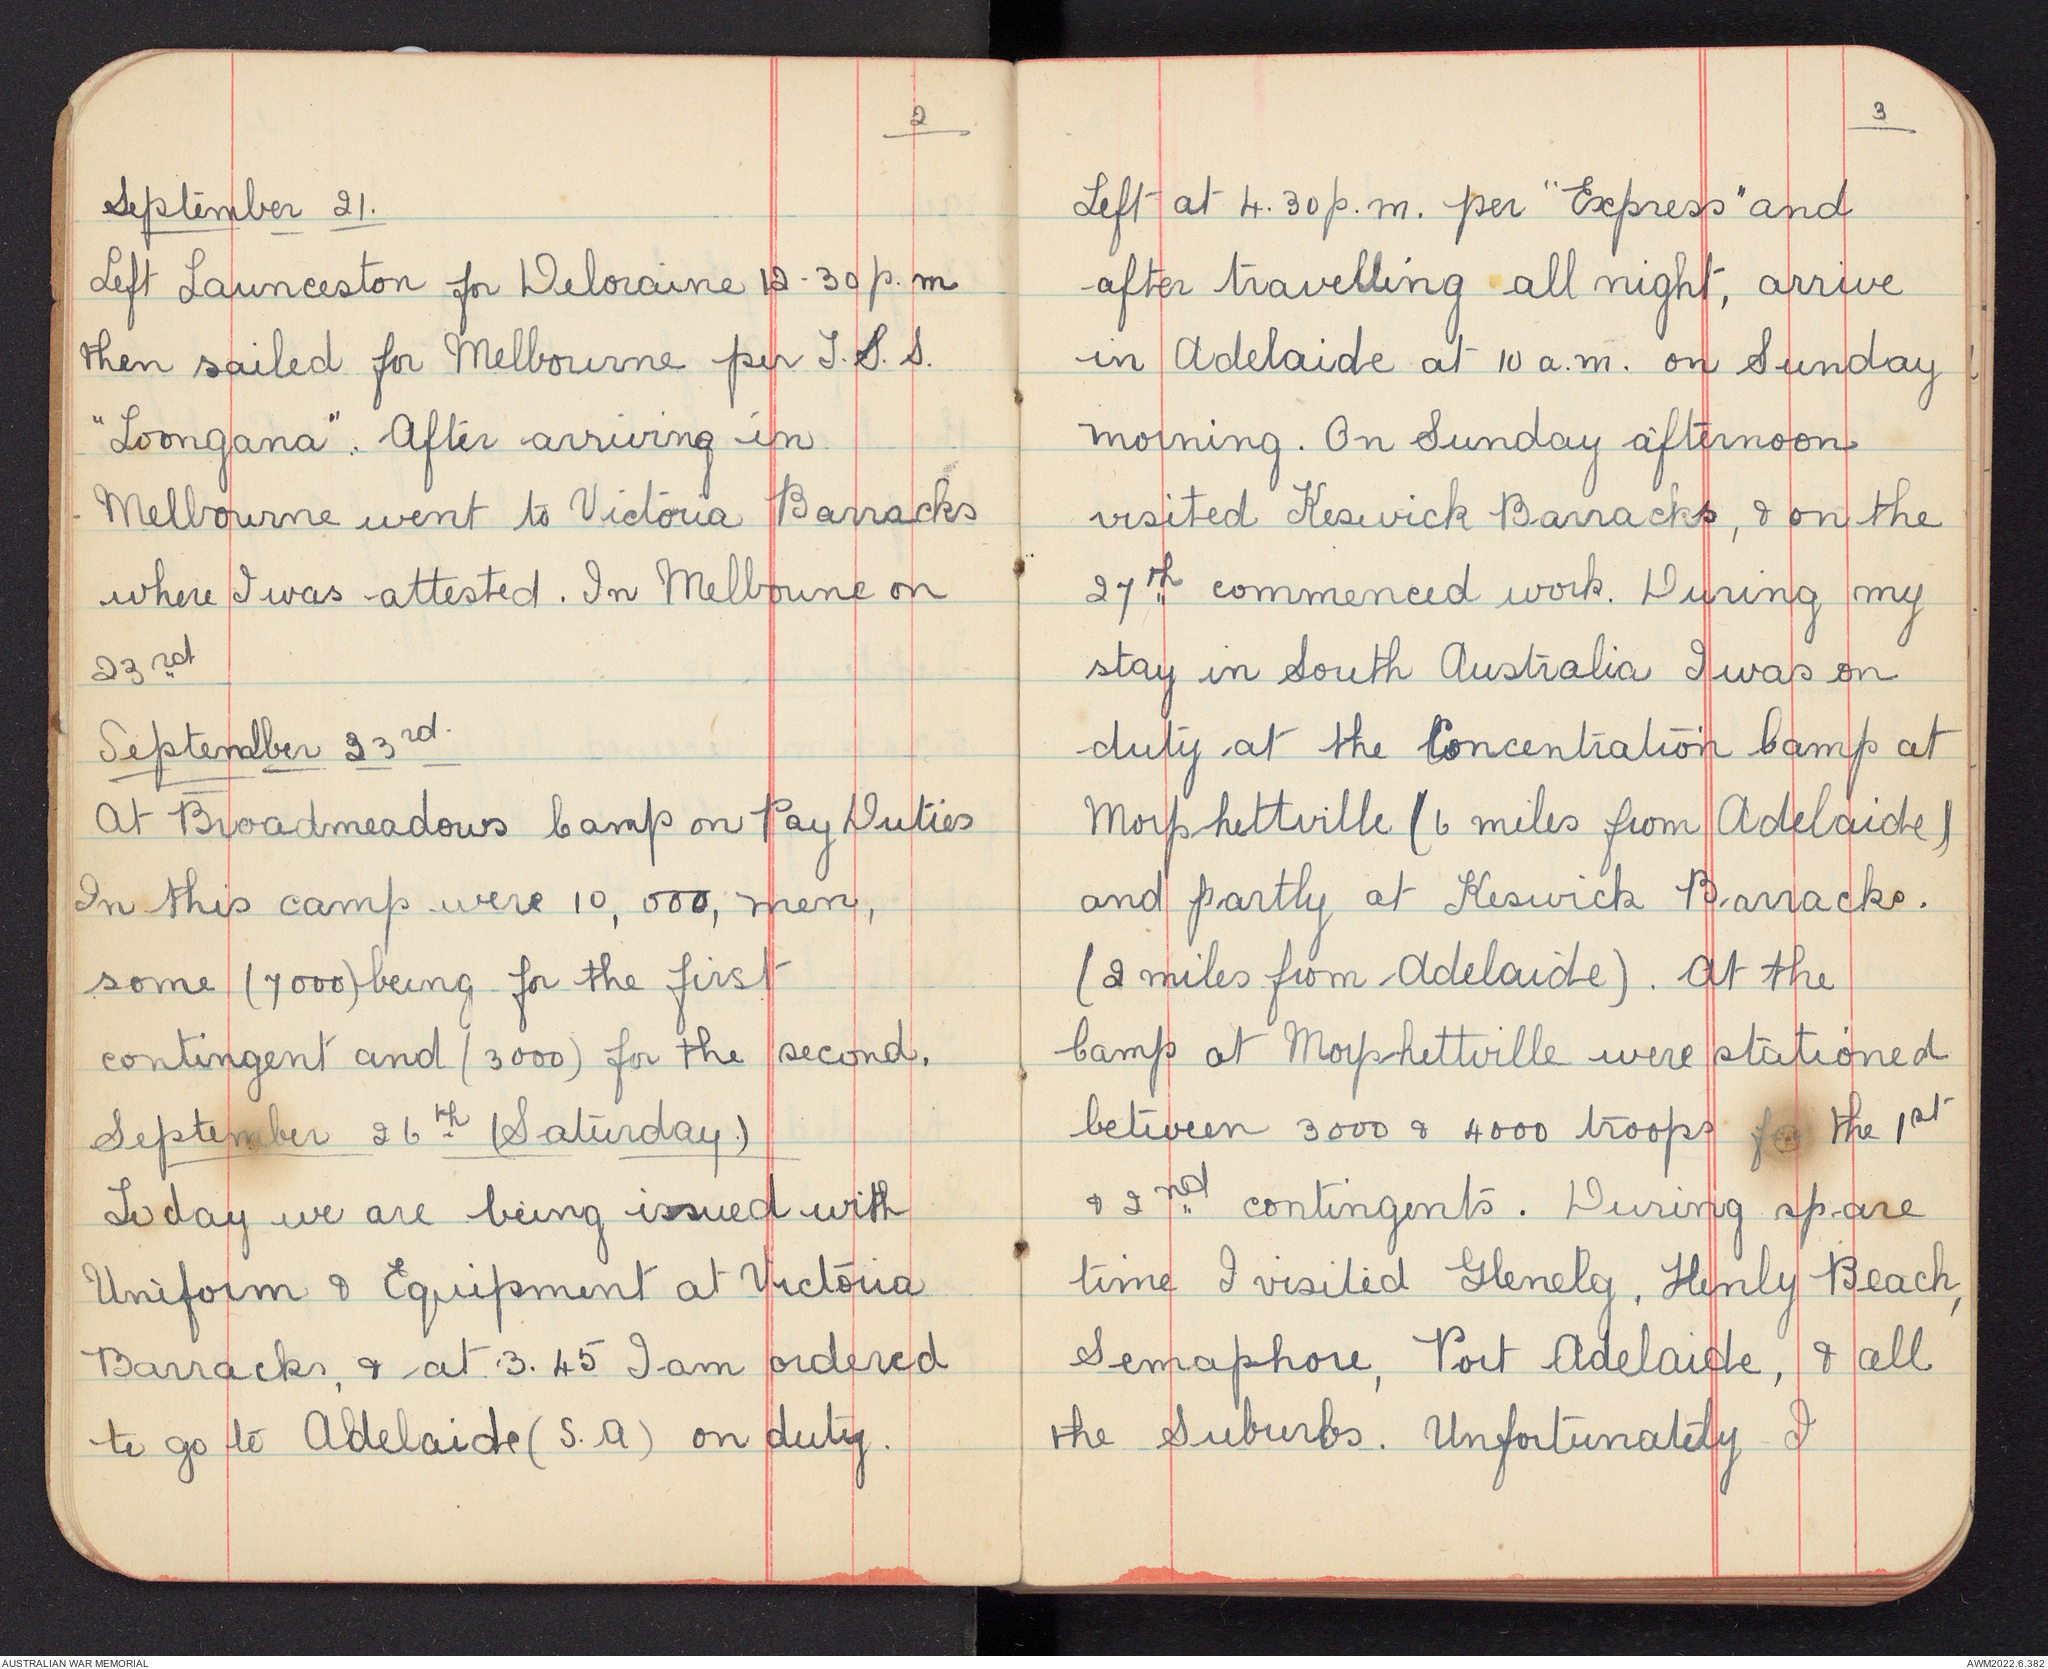 2
September 21.
Left Launceston for Deloraine 12-30 p.m
then sailed for Melbourne per T.S.S.
"Loongana". After arriving in
Melbourne went to Victoria Barracks
where I was attested. In Melbourne on
23rd
September 23rd.
At Broadmeadows Camp on Pay Duties
In this camp were 10,000, men,
some (7000) being for the first
contingent and (3000) for the second.
September 26th (Saturday.)
Today we are being issued with
Uniform & Equipment at Victoria
Barracks, & at 3.45 I am ordered
to go to Adelaide (S.A) on duty.
3
Left at 4.30 p.m. per "Express" and
after travelling all night, arrive
in Adelaide at 10 a.m. on Sunday
morning. On Sunday afternoon
visited Keswick Barracks, & on the
27th commenced work. During my
stay in South Australia I was on
duty at the Concentration Camp at
Morphettville (6 miles from Adelaide)
and partly at Keswick Barracks.
(2 miles from Adelaide). At the
Camp at Morphettville were stationed
between 3000 & 4000 troops for the 1st
& 2nd contingents. During spare
time I visited Glenelg, Henly Beach,
Semaphore, Port Adelaide, & all
the Suburbs. Unfortunately I
AUSTRALIAN WAR MEMORIAL
AWM2022.6.382